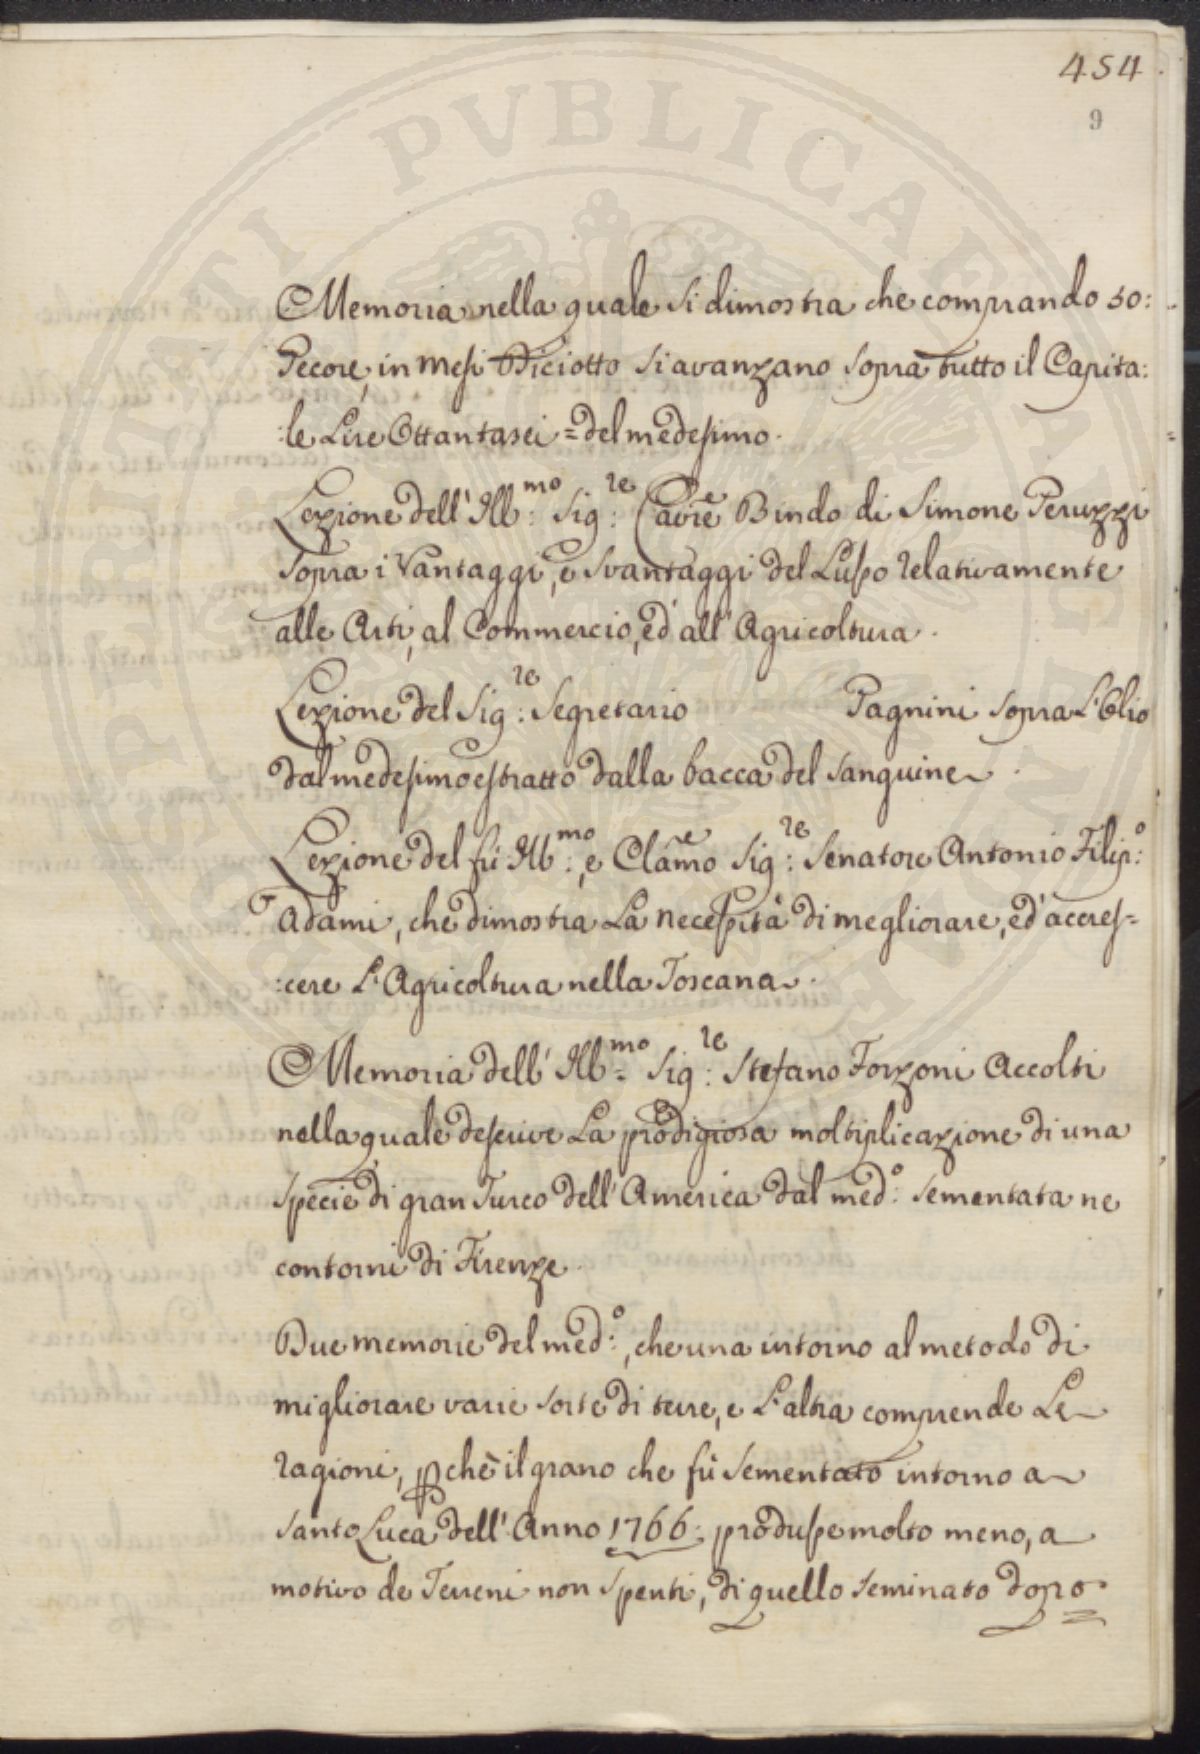 454
9
Memoria nella quale si dimostra che comprando 50:
Pecore, in mesi Diciotto si avanzano sopra tutto il Capita:
:le Lire Ottantasei = del medesimo.
Lezione dell' Ill:mo Sig:re Cavre Bindo di Simone Peruzzi
sopra i Vantaggi, e Svantaggi del Lusso relativamente
alle Arti, al Commercio, ed all' Agricoltura.
Lezione del Sig:re Segretario Pagnini sopra L'Olio
dal medesimo estratto dalla bacca del sanguine.
Lezione del fù Ill:mo, e Clamo Sig:re Senatore Antonio Filip:o
Adami, che dimostra La necessità di megliorare, ed' accres=
:cere L'Agricoltura nella Toscana.
Memoria dell' Ill:mo Sig:re Stefano Forzoni Accolti
nella quale descrive La prodigiosa moltiplicazione di una
specie di gran Turco dell' America dal med:o sementata ne
contorni di Firenze.
Due memorie del med:o, che una intorno al metodo di
migliorare varie sorte di terre, e L'altra comprende Le
ragioni, pchè il grano che fù sementato intorno a
Santo Luca dell' Anno 1766: produsse molto meno, a
motivo de Terreni non spenti, di quello seminato dopo
SOSPERITATI PVBLICAE AVGENDAE